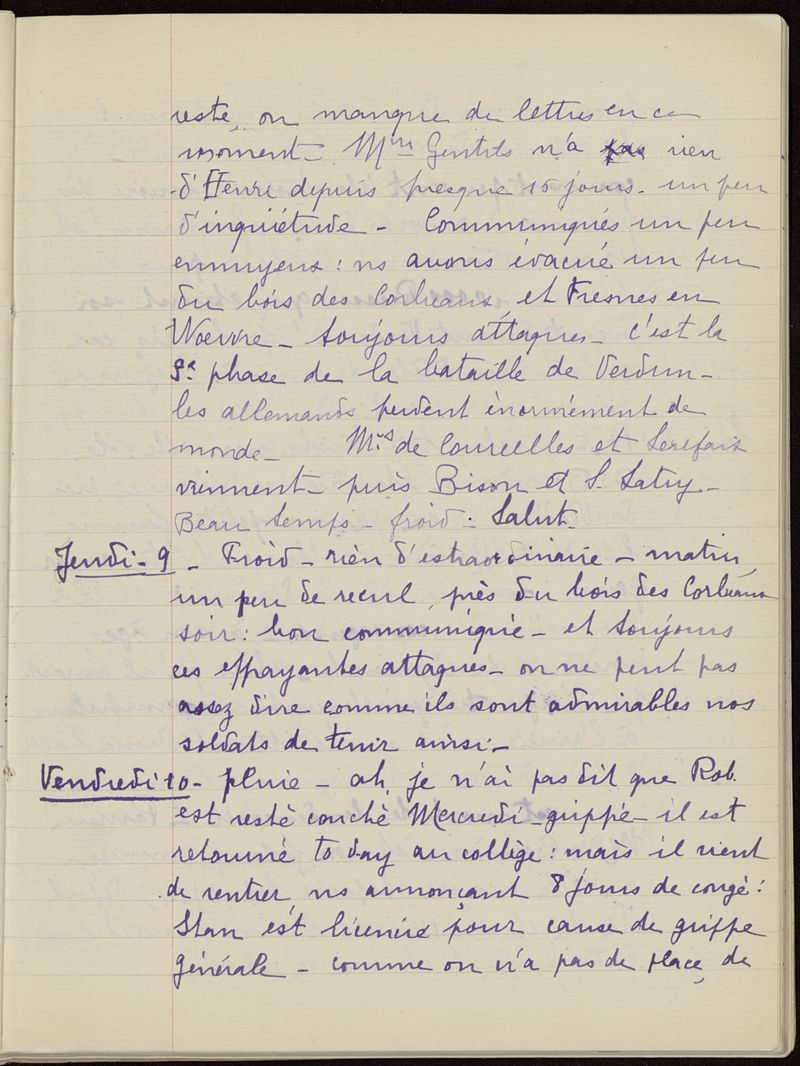 reste, on manque de lettres en ce
moment – Mme Gentils n'a pas rien
d'Henri depuis presque 15 jours. un peu
d'inquiétude – Communiqués un peu
ennuyeux : ns avons évacué un peu
du bois des Corbeaux, et Fresnes en
Woëvre – toujours attaques – c'est la
phase de la bataille de Verdun –
les allemands perdent énormément de
monde – Mes de Courcelles et
viennent – puis Bison et S.
Beau temps – froid : Salut.
Jeudi – 9 – Froid – rien d'extraordinaire – matin,
un peu de recul, près du bois des Corbeaux
soir : bon communiqué – et toujours
ces effrayantes attaques – on ne peut pas
assez dire comme ils sont admirables nos
soldats de tenir ainsi –
Vendredi 10 – pluie – ah, je n'ai pas dit que Rob.
est resté couché Mercredi – grippé – il est
retourné to day au collège : mais il vient
de rentrer, ns annonçant 8 jours de congé :
Stan est licencié pour cause de grippe
générale – comme on n'a pas de place, de